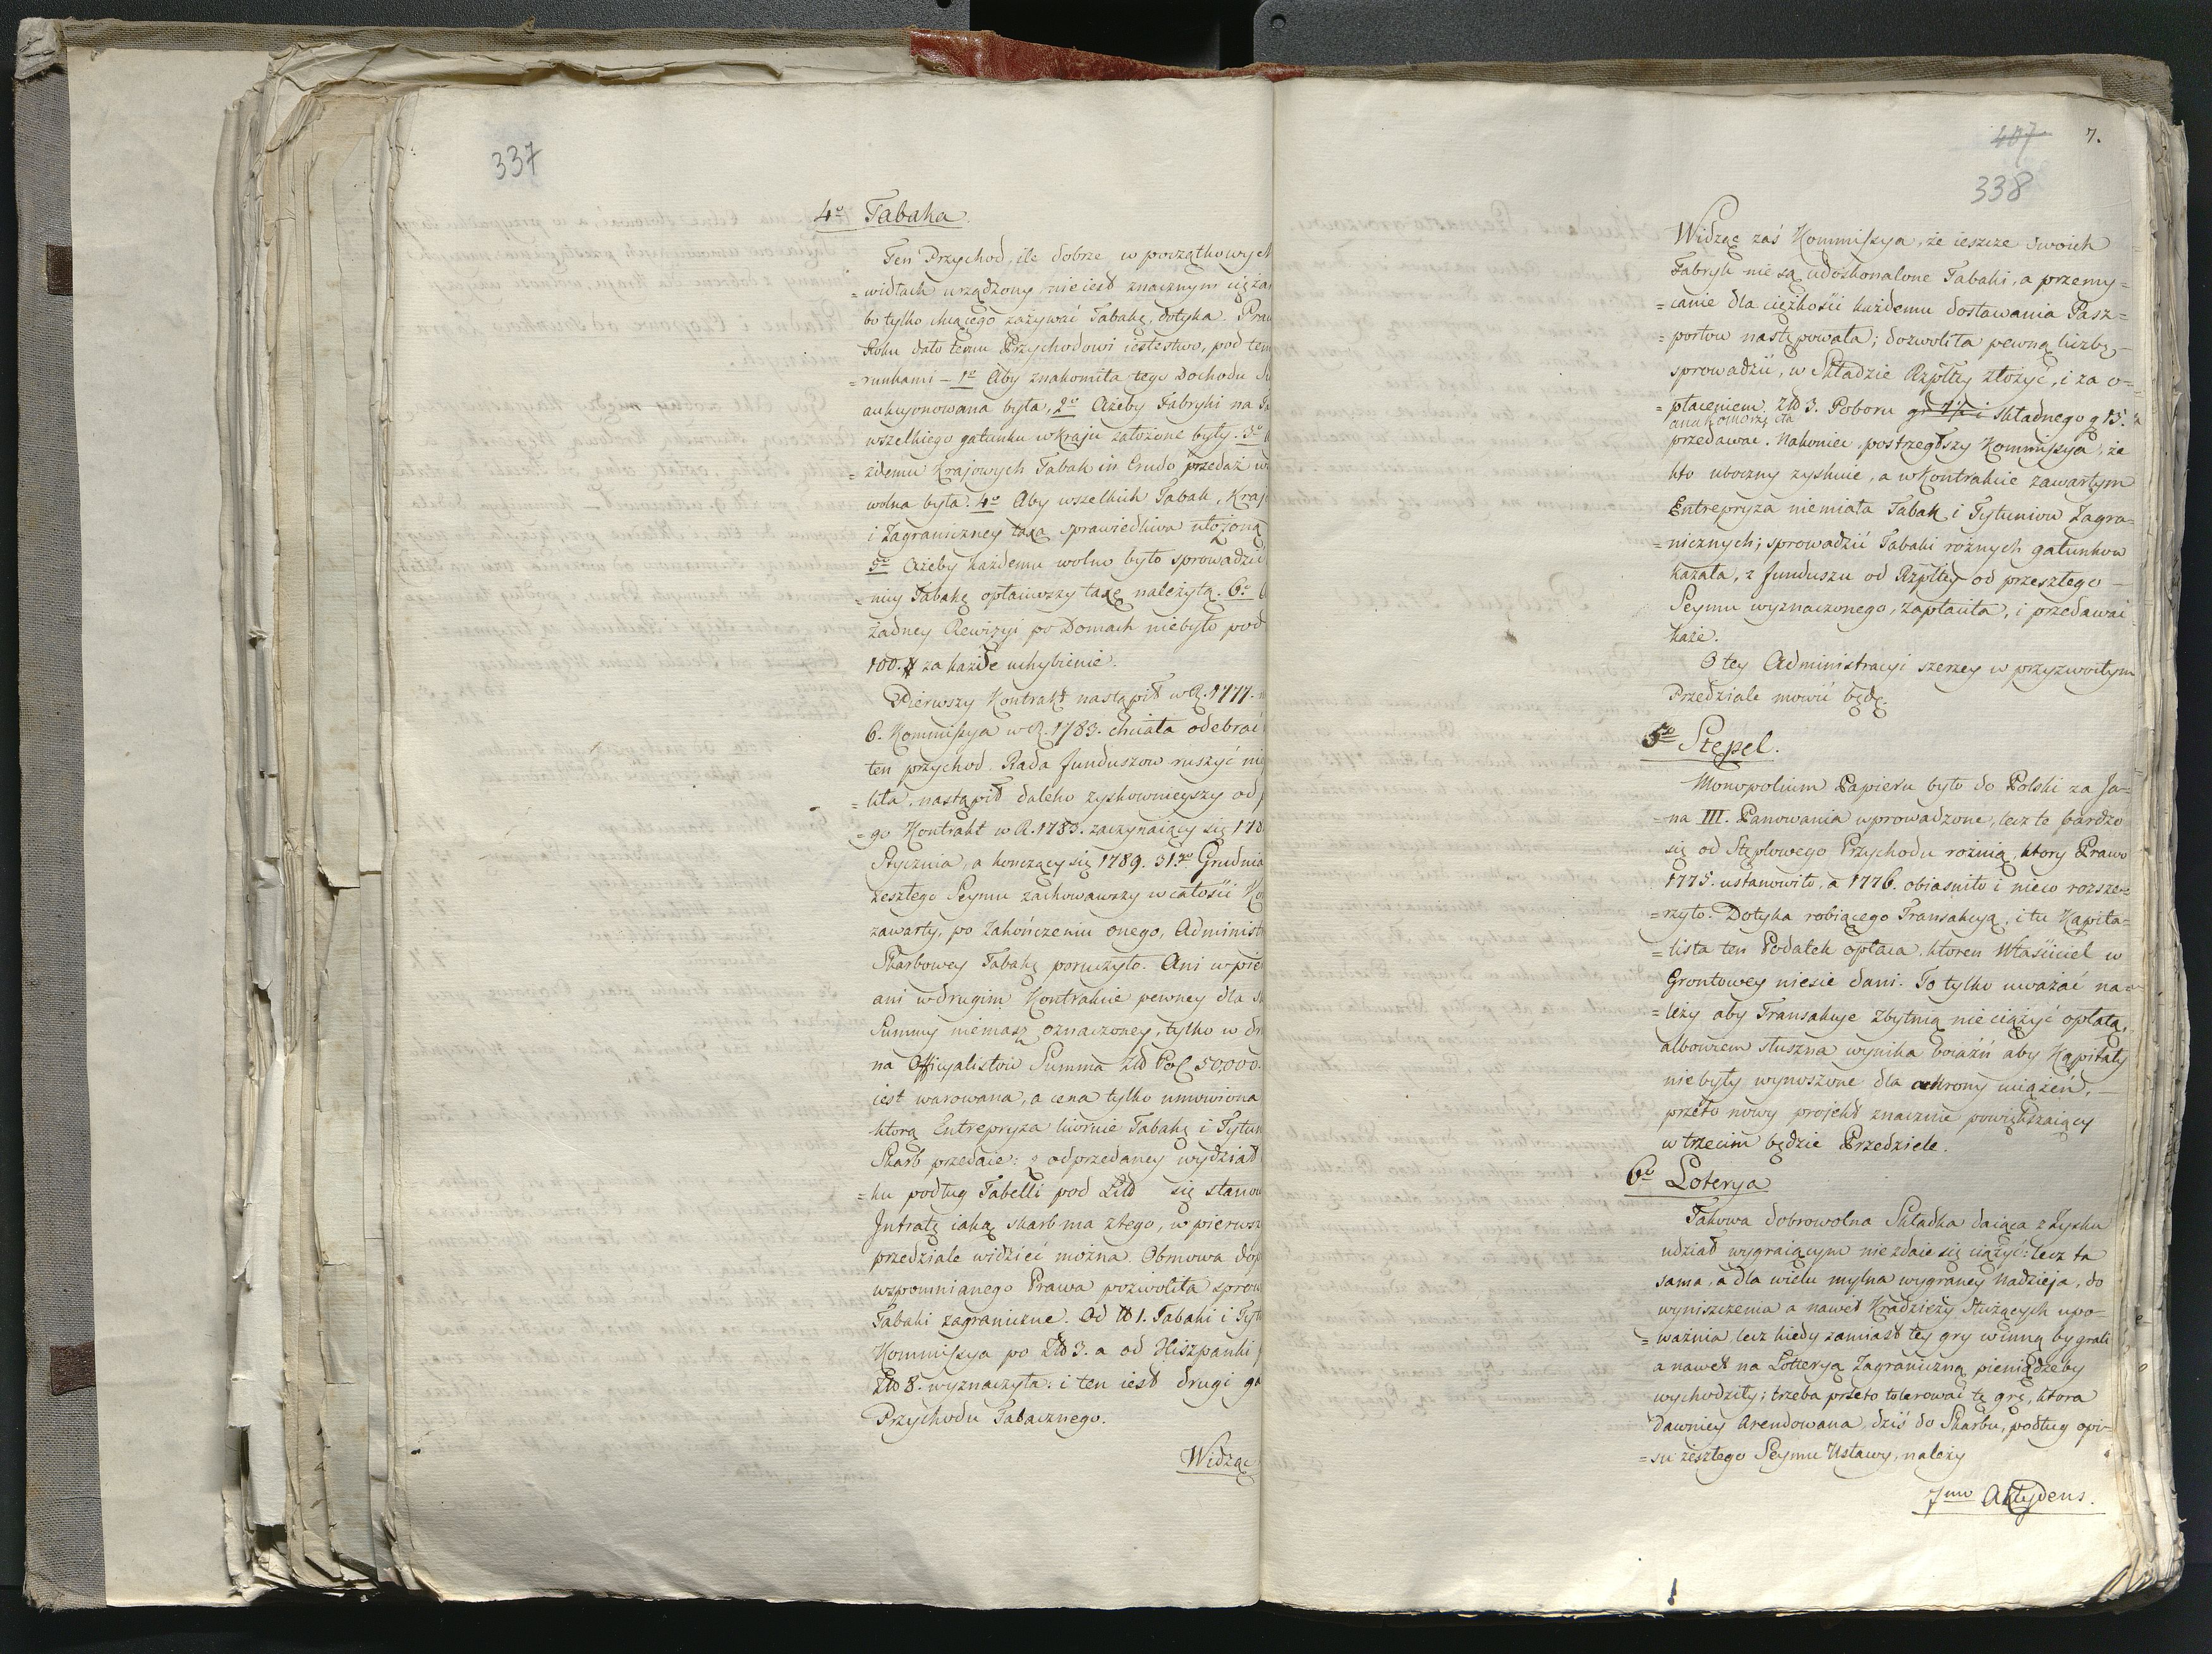 337
4º Tabaka.
Ten Przychod, ile dobrze w początkowych
=widłach urządzony, nie iest znacznym cięża
bo tylko chcącego zażywać Tabakę, dotyka. Praw
Roku dało temu Przychodowi iestestwo, pod tem
=runkami – 1º Aby znakomita tego Dochodu
aukcyonowana była, 2º Ażeby Fabryki na Ta
wszelkiego gatunku w kraju założone były. 3º
=żdemu Krajowych Tabak in Crudo przedaż w
wolna była. 4º Aby wszelkich Tabak, Kraj
i Zagraniczney taxa sprawiedliwa ułożoną
5º Ażeby każdemu wolno było sprowadzić
=niey Tabakę opłaciwszy taxę należytą. 6º
żadney Rewizyi po Domach niebyło pod
100. # za każde uchybienie.
Pierwszy Kontrakt nastąpił w R. 1777.
6. Kommissya w R. 1783. chciała odebrać
ten przychod. Rada funduszow ruszyć nie
=kła, nastąpił daleko zyskownieyszy od
=go Kontrakt w R. 1783. zaczynaiący się 178
Stycznia, a konczący się 1789. 31go Grudnia
zeszłego Seymu zachowawszy w całości Ko
zawarty, po Zakończeniu onego, Administ
Skarbowey Tabakę poruczyło. Ani w pie
ani w drugim Kontrakcie pewney dla
Summy niemasz oznaczoney, tylko w dr
na Officyalistow Summa Złł Pol 50,000.
iest warowana, a cena tylko umowiona
ktorą Entrepryza liwruie Tabakę i Tytun
Skarb przedaie: z odprzedaney wydział
=ku podług Tabelli pod Litt się stanow
Intratę iaką skarb ma ztego, w pierwsz
przedziale widzieć można. Obmowa dop
wspomnianego Prawa pozwoliła sprow
Tabaki zagraniczne. Od ℔ 1. Tabaki i Tyt
Kommissya po Złł 3. a od Hiszpanki
Złł 8. wyznaczyła: i ten iest drugi ga
Przychodu Tabacznego.
Widząc
407 7.
338
Widząc zaś Kommissya, że ieszcze swoich
Fabryk nie są udoskonalone Tabaki, a przemy=
=canie dla ciężkości każdemu dostawania Pasz=
=portow następowała; dozwoliła pewną liczbę –
sprowadzić, w Składzie Rzpltey złożyć, i za o=
=płaceniem Złł 3. Poboru i składnego g 15.
przedawac. Nakoniec postrzegłszy Kommissya, że
kto uboczny zyskuie, a w Kontrakcie zawartym
Entrepryza niemiała Tabak i Tytuniow Zagra=
=nicznych; sprowadzić Tabaki rożnych gatunkow
kazała, z funduszu od Rzpltey od przeszłego –
Seymu wyznaczonego, zapłaciła, i przedawać
każe.
O tey Administracyi szerzey w przyzwoitym
Przedziale mowić będę.
5º Stępel.
Monopolium Papieru było do Polski za Ja=
=na III. Panowania wprowadzone, lecz te bardzo
się od Stęplowego Przychodu rożnią, ktory Prawo
1775. ustanowiło, a 1776. obiasniło i nieco rozsze=
=rzyło. Dotyka robiącego Transakcyą, i tu Kapita=
=lista ten Podatek opłaca, ktoren Właściciel w
Grontowey niesie dani. To tylko uważać na=
=leży aby Transakcye Zbytnią nie ciążyć opłatą,
albowiem słuszna wynika boiaźń aby Kapitały
niebyły wynoszone dla ochrony uciążeń, –
przeto nowy projekt znacznie powiększaiący
w trzecim będzie Przedziele.
6º Loterya
Takowa dobrowolna Składka daiąca z Zysku
udział wygraiącym nie zdaie się ciążyć: lecz ta
sama, a dla wielu mylna wygraney Nadzieja, do
wyniszczenia a nawet Kradzieży Służących upo=
=ważnia, lecz kiedy zamiast tey gry w inną by grali
a nawet na Lotteryą Zagraniczną pieniądzeby
wychodziły; trzeba przeto tolerować tę grę, ktora
Dawniey Arendowana, dziś do Skarbu, podług opi=
=su zeszłego Seymu Ustawy, należy
7mo Akcydens.